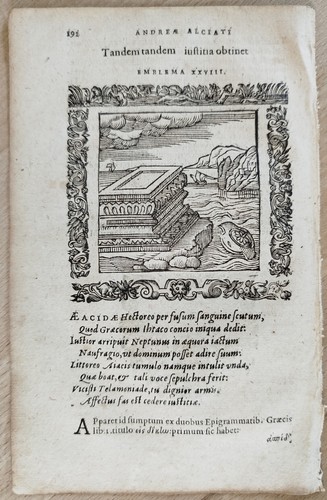 192 ANDREÆ ALCIATI
Tandem tandem iustitia obtinet
EMBLEMA XXVIII.
ÆACIDÆ Hectoreo perfusum sanguine scutum,
Quod Græcorum Ithaco concio iniqua dedit:
Iustior arripuit Neptunus in æquora iactum
Naufragio, vt dominum posset adire suum:
Littoreo Aiacis tumulo namque intulit vnda,
Quæ boat, & tali voce sepulchra ferit:
Vicisti Telamoniade, tu dignior armis,
Affectus fas est cedere iustitiæ.
Apparet id sumptum ex duobus Epigrammatib. Græcis
lib. 1. titulo primum sic habet: